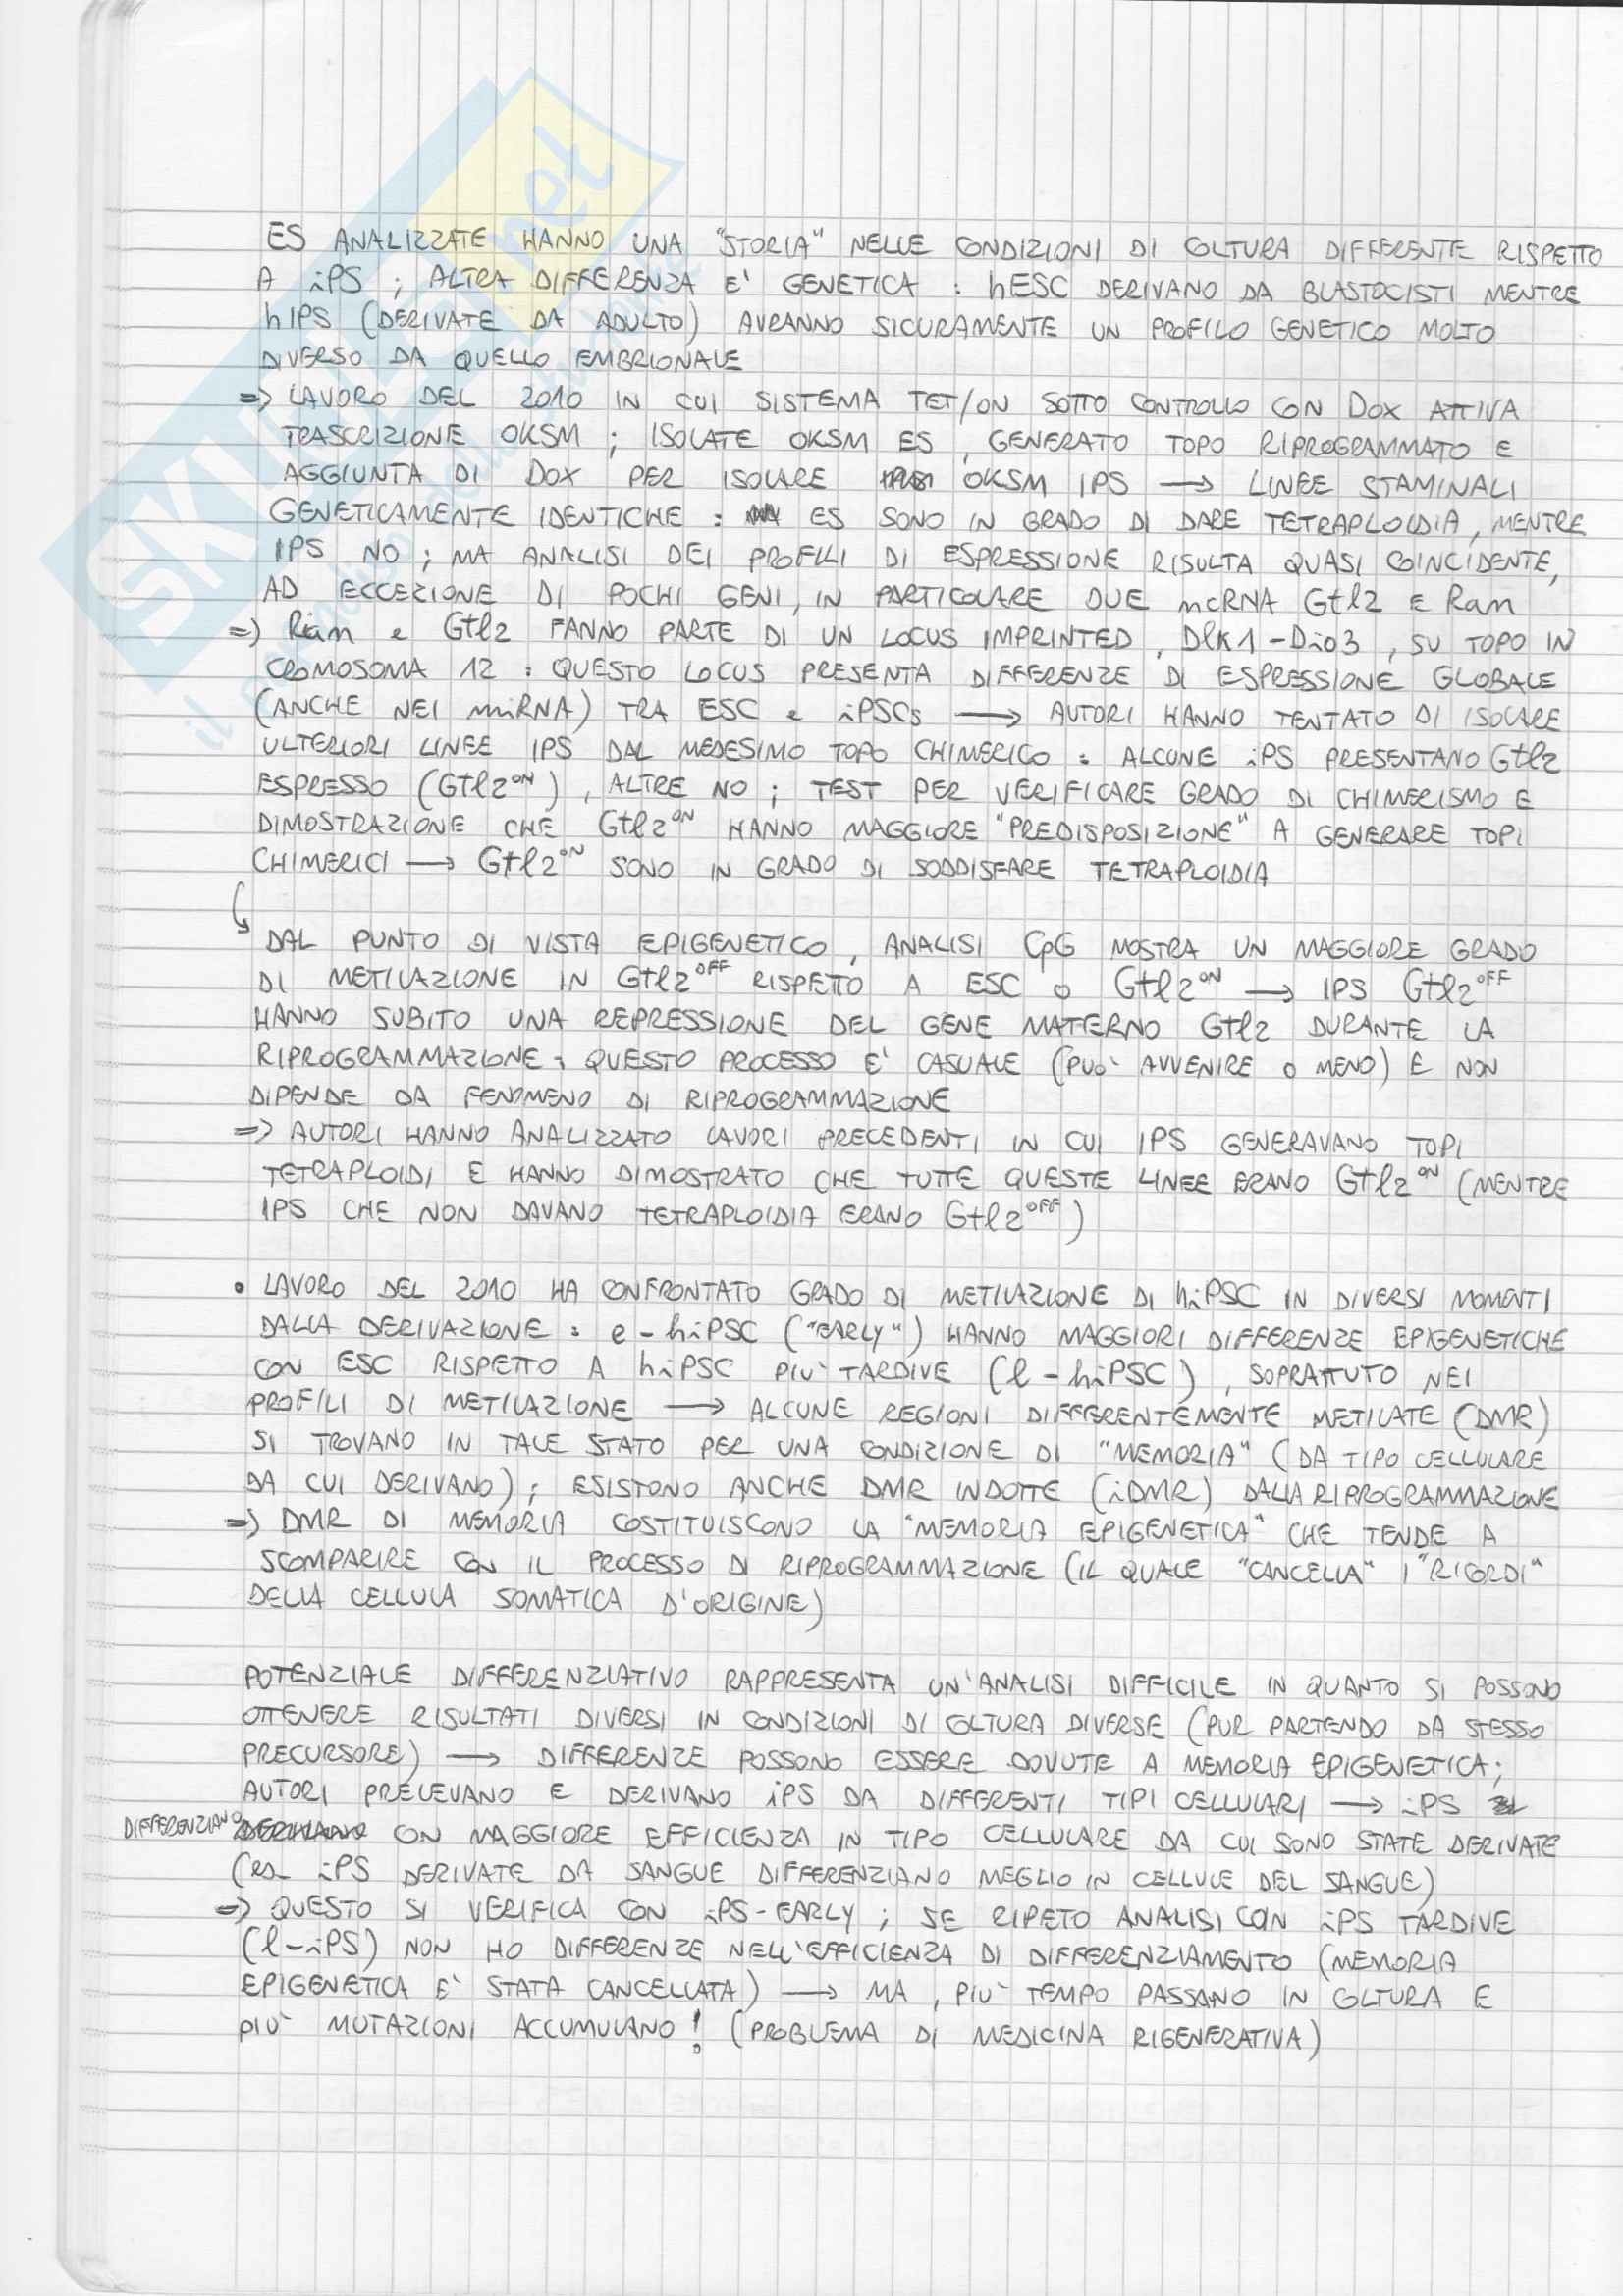 ES ANALIZZATE HANNO UNA "STORIA" NELLE CONDIZIONI DI COLTURA DIFFERENTE RISPETTO
A iPS ; ALTRA DIFFERENZA E' GENETICA : hESC DERIVANO DA BLASTOCISTI MENTRE
hIPS (DERIVATE DA ADULTO) AVRANNO SICURAMENTE UN PROFILO GENETICO MOLTO
DIVERSO DA QUELLO EMBRIONALE
=> LAVORO DEL 2010 IN CUI SISTEMA TET/ON SOTTO CONTROLLO CON DOX ATTIVA
TRASCRIZIONE OKSM ; ISOLATE OKSM ES, GENERATO TOPO RIPROGRAMMATO E
AGGIUNTA DI DOX PER ISOLARE OKSM IPS → LINEE STAMINALI
GENETICAMENTE IDENTICHE : ES SONO IN GRADO DI DARE TETRAPLOIDIA, MENTRE
IPS NO ; MA ANALISI DEI PROFILI DI ESPRESSIONE RISULTA QUASI COINCIDENTE,
AD ECCEZIONE DI POCHI GENI, IN PARTICOLARE DUE ncRNA Gtl2 E Rian
=> Rian e Gtl2 FANNO PARTE DI UN LOCUS IMPRINTED, Dlk1-Dio3, SU TOPO IN
CROMOSOMA 12 : QUESTO LOCUS PRESENTA DIFFERENZE DI ESPRESSIONE GLOBALE
(ANCHE NEI miRNA) TRA ESC e iPSCs → AUTORI HANNO TENTATO DI ISOLARE
ULTERIORI LINEE IPS DAL MEDESIMO TOPO CHIMERICO : ALCUNE iPS PRESENTANO Gtl2
ESPRESSO (Gtl2ᴼᴺ), ALTRE NO ; TEST PER VERIFICARE GRADO DI CHIMERISMO E
DIMOSTRAZIONE CHE Gtl2ᴼᴺ HANNO MAGGIORE "PREDISPOSIZIONE" A GENERARE TOPI
CHIMERICI → Gtl2ᴼᴺ SONO IN GRADO DI SODDISFARE TETRAPLOIDIA
↳ DAL PUNTO DI VISTA EPIGENETICO, ANALISI CpG MOSTRA UN MAGGIORE GRADO
DI METILAZIONE IN Gtl2ᴼFF RISPETTO A ESC O Gtl2ᴼᴺ → IPS Gtl2ᴼFF
HANNO SUBITO UNA REPRESSIONE DEL GENE MATERNO Gtl2 DURANTE LA
RIPROGRAMMAZIONE ; QUESTO PROCESSO E' CASUALE (PUO' AVVENIRE O MENO) E NON
DIPENDE DA FENOMENO DI RIPROGRAMMAZIONE
=> AUTORI HANNO ANALIZZATO LAVORI PRECEDENTI IN CUI IPS GENERAVANO TOPI
TETRAPLOIDI E HANNO DIMOSTRATO CHE TUTTE QUESTE LINEE ERANO Gtl2ᴼᴺ (MENTRE
IPS CHE NON DAVANO TETRAPLOIDIA ERANO Gtl2ᴼFF)
• LAVORO DEL 2010 HA CONFRONTATO GRADO DI METILAZIONE DI hiPSC IN DIVERSI MOMENTI
DALLA DERIVAZIONE : e-hiPSC ("EARLY") HANNO MAGGIORI DIFFERENZE EPIGENETICHE
CON ESC RISPETTO A hiPSC PIU' TARDIVE (l-hiPSC), SOPRATTUTTO NEI
PROFILI DI METILAZIONE → ALCUNE REGIONI DIFFERENTEMENTE METILATE (DMR)
SI TROVANO IN TALE STATO PER UNA CONDIZIONE DI "MEMORIA" (DA TIPO CELLULARE
DA CUI DERIVANO) ; ESISTONO ANCHE DMR INDOTTE (iDMR) DALLA RIPROGRAMMAZIONE
=> DMR DI MEMORIA COSTITUISCONO LA "MEMORIA EPIGENETICA" CHE TENDE A
SCOMPARIRE CON IL PROCESSO DI RIPROGRAMMAZIONE (IL QUALE "CANCELLA" I "RICORDI"
DELLA CELLULA SOMATICA D'ORIGINE)
POTENZIALE DIFFERENZIATIVO RAPPRESENTA UN'ANALISI DIFFICILE IN QUANTO SI POSSONO
OTTENERE RISULTATI DIVERSI IN CONDIZIONI DI COLTURA DIVERSE (PUR PARTENDO DA STESSO
PRECURSORE) → DIFFERENZE POSSONO ESSERE DOVUTE A MEMORIA EPIGENETICA ;
AUTORI PRELEVANO E DERIVANO iPS DA DIFFERENTI TIPI CELLULARI → iPS
DIFFERENZIANO CON MAGGIORE EFFICIENZA IN TIPO CELLULARE DA CUI SONO STATE DERIVATE
(es. iPS DERIVATE DA SANGUE DIFFERENZIANO MEGLIO IN CELLULE DEL SANGUE)
=> QUESTO SI VERIFICA CON iPS-EARLY ; SE RIPETO ANALISI CON iPS TARDIVE
(l-iPS) NON HO DIFFERENZE NELL'EFFICIENZA DI DIFFERENZIAMENTO (MEMORIA
EPIGENETICA E' STATA CANCELLATA) → MA, PIU' TEMPO PASSANO IN COLTURA E
PIU' MUTAZIONI ACCUMULANO! (PROBLEMA DI MEDICINA RIGENERATIVA)